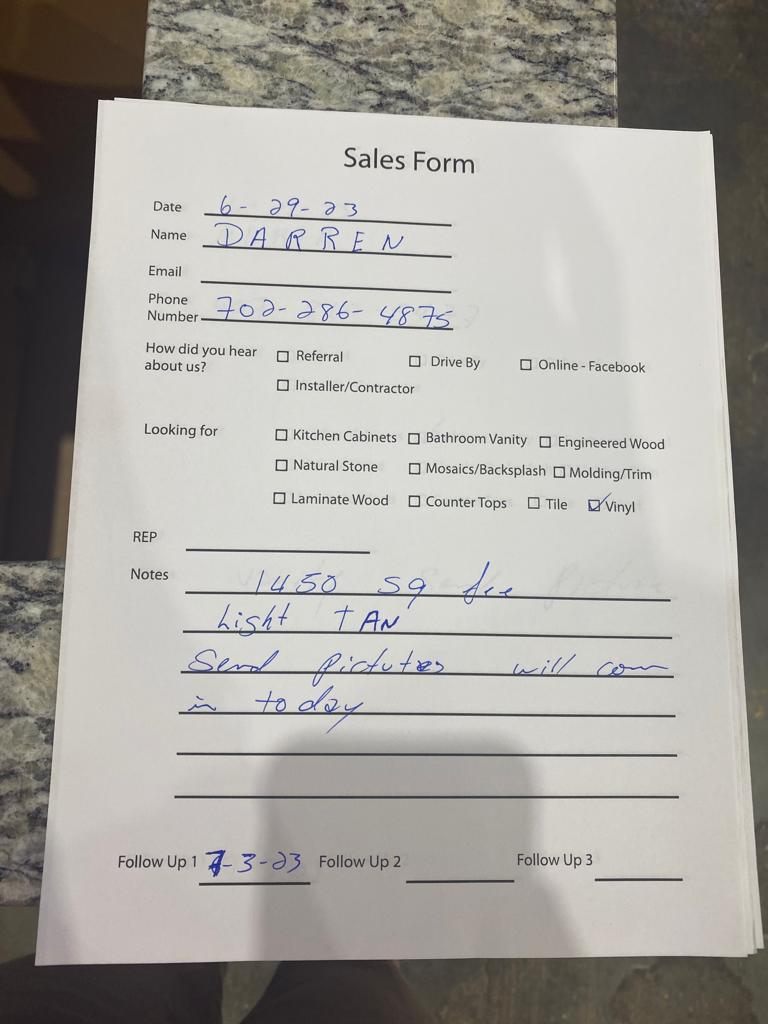 Sales Form
Date 6-29-23
Name DARREN
Email
Phone Number 702-286-4875
How did you hear about us? ☐ Referral ☐ Drive By ☐ Online - Facebook
☐ Installer/Contractor
Looking for ☐ Kitchen Cabinets ☐ Bathroom Vanity ☐ Engineered Wood
☐ Natural Stone ☐ Mosaics/Backsplash ☐ Molding/Trim
☐ Laminate Wood ☐ Counter Tops ☐ Tile ☑ Vinyl
REP
Notes 1450 sq fee
Light TAN
Send pictutes will com
in today
Follow Up 1 7-3-23 Follow Up 2 Follow Up 3